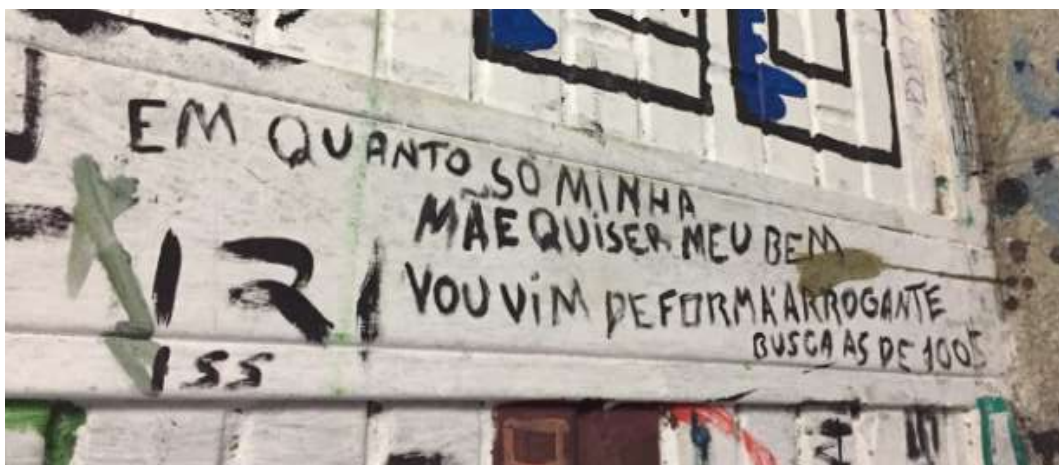 EM QUANTO SÓ MINHA
MÃE QUISER MEU BEM
VOU VIM DE FORMA ARROGANTE
BUSCA AS DE 100$